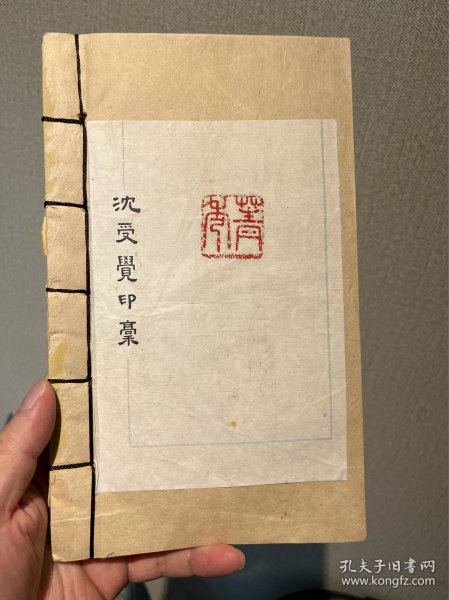 沈受覺印稾
孔夫子旧书网
www.kongfz.com